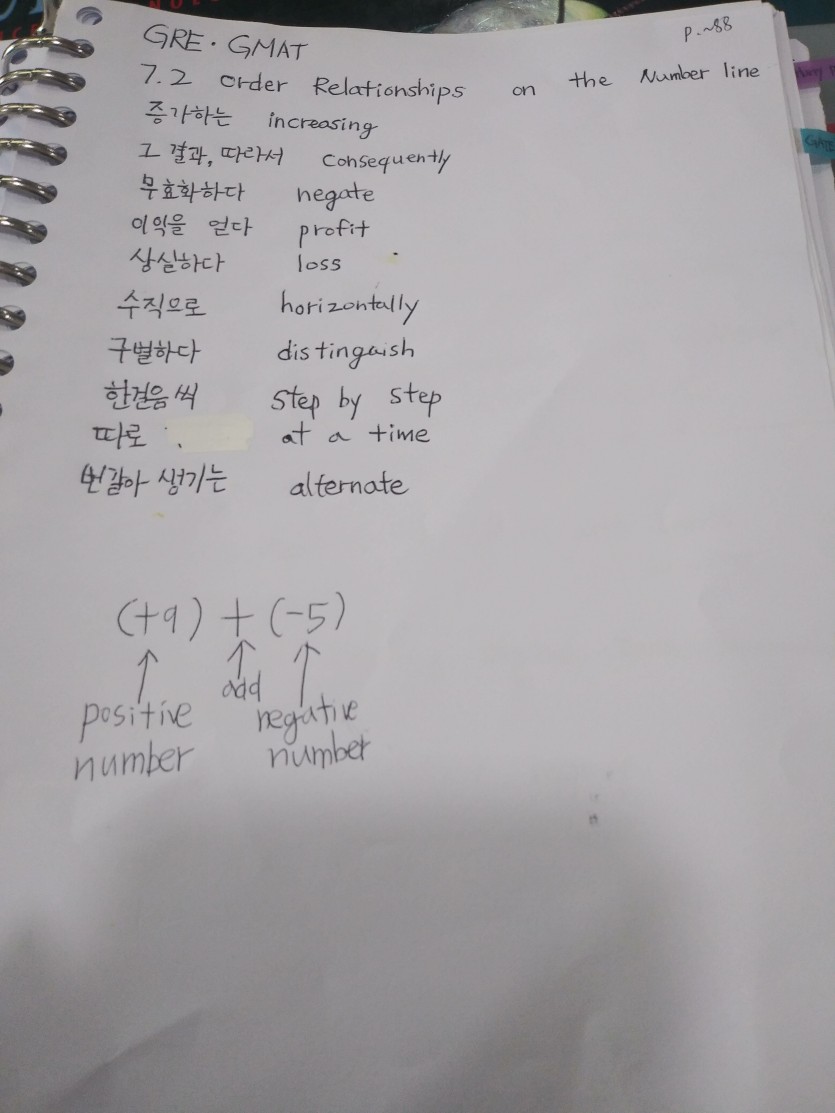 GRE · GMAT
p.~88
7.2 order Relationships on the Number line
증가하는 increasing
그 결과, 따라서 consequently
무효화하다 negate
이익을 얻다 profit
상실하다 loss
수직으로 horizontally
구별하다 distinguish
한걸음씩 step by step
따로 at a time
번갈아 생기는 alternate
(+9) + (-5)
positive number
add
negative number